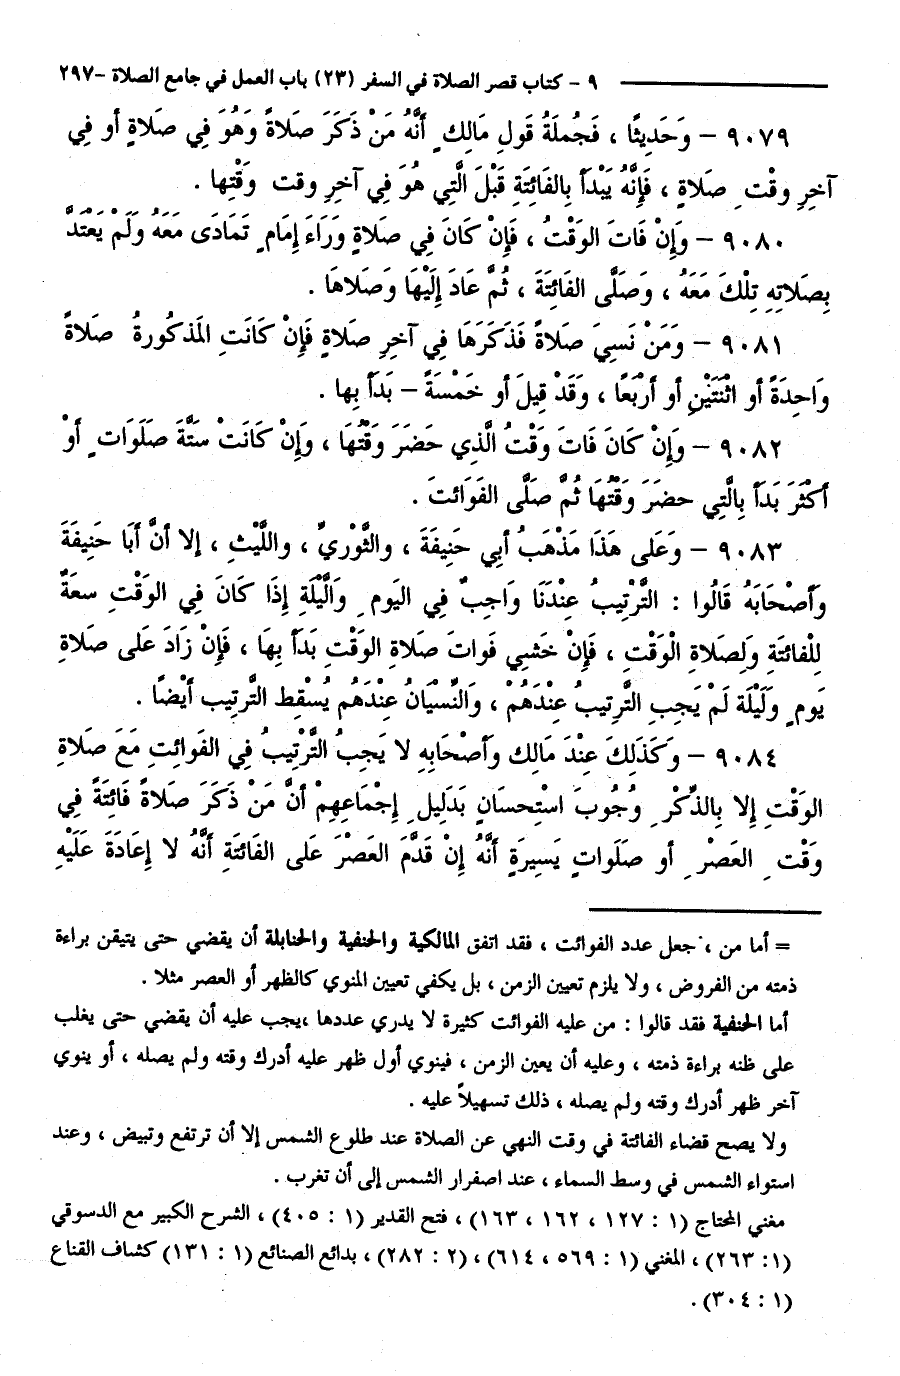 ٩ - كتاب قصر الصلاة في السفر (٢٣) باب العمل في جامع الصلاة -٢٩٧
٩٠٧٩ - وَحَدِيثًا ، فَجُملَةُ قَولِ مَالِكٍ أَنَّهُ مَنْ ذَكَرَ صَلاةً وَهُوَ فِي صَلاةٍ أو فِي
آخرِ وقْتِ صَلاةٍ ، فَإِنَّهُ يَبْدَأ بِالفَائِتَةِ قَبْلَ الَّتِي هُوَ فِي آخرِ وقت وَقْتِها .
٩٠٨٠ - وَإِنْ فَاتَ الوَقْتُ ، فَإِنْ كَانَ فِي صَلاةٍ وَرَاءَ إِمَامٍ تَمَادَى مَعَهُ وَلَمْ يَعْتَدَّ
بِصَلاتِهِ تِلْكَ مَعَهُ ، وَصَلَّى الفَائتَةَ ، ثُمَّ عَادَ إِلَيْهَا وَصَلاهَا .
٩٠٨١ - وَمَنْ نَسِيَ صَلاةً فَذَكَرَهَا فِي آخرِ صَلاةٍ فَإِنْ كَانَتِ المَذكُورةُ صَلاةً
وَاحِدَةً أو اثْنَتَيْنِ أو أَرْبَعًا ، وَقَدْ قِيلَ أو خَمْسَةً - بَدَأ بِها .
٩٠٨٢ - وَإِنْ كَانَ فَاتَ وَقْتُ الَّذِي حَضَرَ وَقْتُهَا ، وَإِنْ كَانَتْ ستَّةَ صَلَوَاتٍ أَوْ
أَكْثَرَ بَدَأ بِالَّتِي حضَرَ وَقْتُهَا ثُمَّ صَلَّى الفَوَائتَ .
٩٠٨٣ - وَعَلى هَذَا مَذْهَبُ أبي حَنِيفَةَ ، والثَّوْرِيِّ ، واللَّيْثِ ، إلا أنَّ أَبَا حَنِيفَةَ
وأَصْحَابَهُ قَالُوا : التَّرْتِيبُ عِنْدَنَا وَاجِبٌ فِي اليَومِ وَالَّيْلَةِ إِذَا كَانَ فِي الوَقْتِ سعَةٌ
لِلْفَائتَةِ وَلِصَلاةِ الْوَقْتِ ، فَإِنْ خَشي فَوَاتَ صَلاةِ الوَقْتِ بَدَأ بِهَا ، فَإِنْ زَادَ عَلى صَلاةِ
يَومٍ وَلَيْلَة لَمْ يَجبِ التَّرِتيبُ عِنْدَهُمْ ، وَالنِّسْيَانُ عِنْدَهُم يُسْقِط التَّرتِيب أَيْضًا .
٩٠٨٤ - وَكَذَلِكَ عِنْدَ مَالك وَأَصْحَابِهِ لا يَجِبُ التَّرْتِيبُ فِي الفَوائتِ مَعَ صَلاةِ
الوَقْتِ إِلا بِالذِّكْرِ وُجُوبَ اسْتِحسَانٍ بَدَلِيلِ إِجْمَاعِهِمْ أنَّ مَنْ ذَكَرَ صَلاةً فَائتَةً فِي
وَقْتِ العَصْرِ أو صَلَواتٍ يَسِيرَةٍ أَنَّهُ إِنْ قَدَّمَ العَصْرَ عَلَى الفَائتَةِ أَنَّهُ لا إِعَادَةَ عَلَيْهِ
= أما من ، جعل عدد الفوائت ، فقد اتفق المالكية والحنفية والحنابلة أن يقضي حتى يتيقن براءة
ذمته من الفروض ، ولا يلزم تعيين الزمن ، بل يكفي تعيين المنوي كالظهر أو العصر مثلا .
أما الحنفية فقد قالوا : من عليه الفوائت كثيرة لا يدري عددها ،يجب عليه أن يقضي حتى يغلب
على ظنه براءة ذمته ، وعليه أن يعين الزمن ، فينوي أول ظهر عليه أدرك وقته ولم يصله ، أو ينوي
آخر ظهر أدرك وقته ولم يصله ، ذلك تسهيلاً عليه .
ولا يصح قضاء الفائتة في وقت النهي عن الصلاة عند طلوع الشمس إلا أن ترتفع وتبيض ، وعند
استواء الشمس في وسط السماء ، عند اصفرار الشمس إلى أن تغرب .
مغني المحتاج (١ : ١٢٧ ، ١٦٢ ، ١٦٣) ، فتح القدير (١ : ٤٠٥) ، الشرح الكبير مع الدسوقي
(١: ٢٦٣) ، المغني (١ : ٥٦٩ ، ٦١٤) ، (٢ : ٢٨٢) ، بدائع الصنائع (١ : ١٣١) كشاف القناع
(١ : ٣٠٤) .